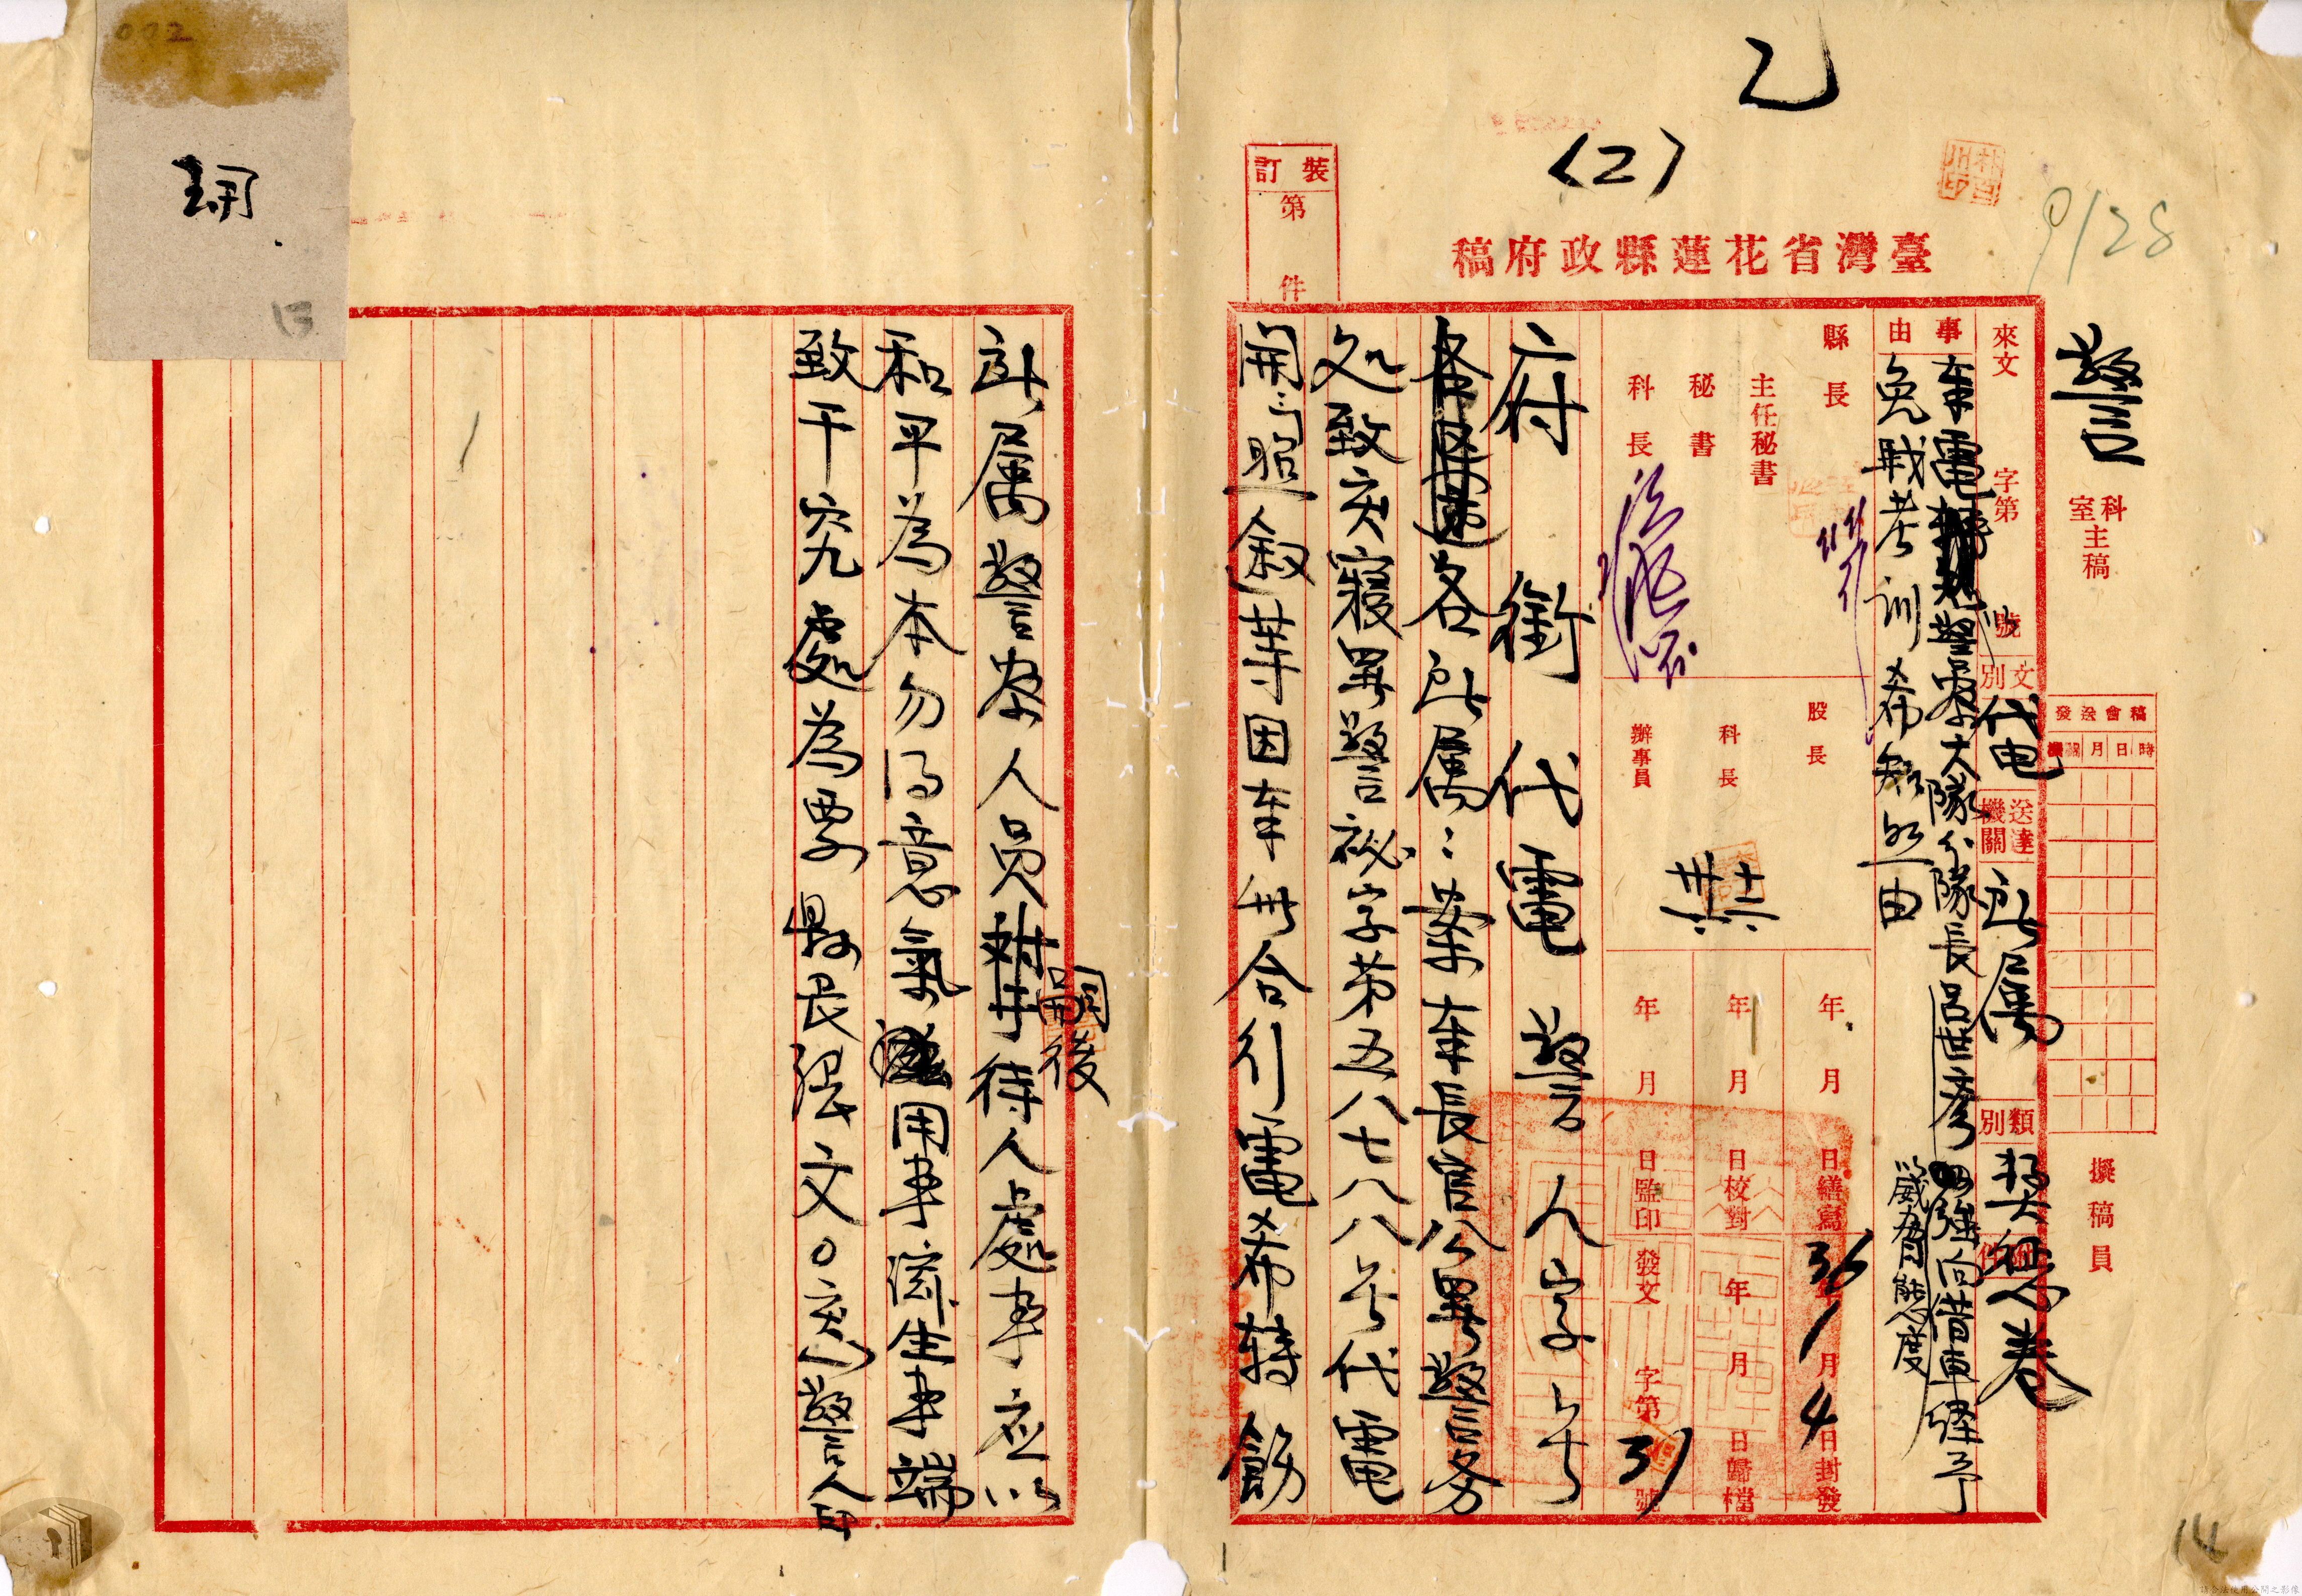 乙
(2)
9/28
臺灣省花蓮縣政府稿
裝訂
第 件
警
科室主稿
擬稿員
稿會送發
時日月
來文 字第 號
文別
代电
送達機關
所屬
類別
奬懲卷
附件
事由
奉電警察大隊分隊長呂世彥強向借車經予
以威脅態度
免戝考訓希知照由
縣長
主任秘書
秘書
科長
股長
科長
辦事員
年月日繕寫
年月日校對
年月日監印
36年1月4日封發
年月日歸檔
發文 字第31號
府銜代電 警人字 号
各所屬:案奉長官公署警務
処致亥寢署警祕字第五八七八八号代電
開「照敘」等因奉此合行電希轉飭
所屬警察人員嗣後待人處事应以
和平為本勿得意氣用事滋生事端
致干究處為要縣長張文○亥警人印
072
13
14